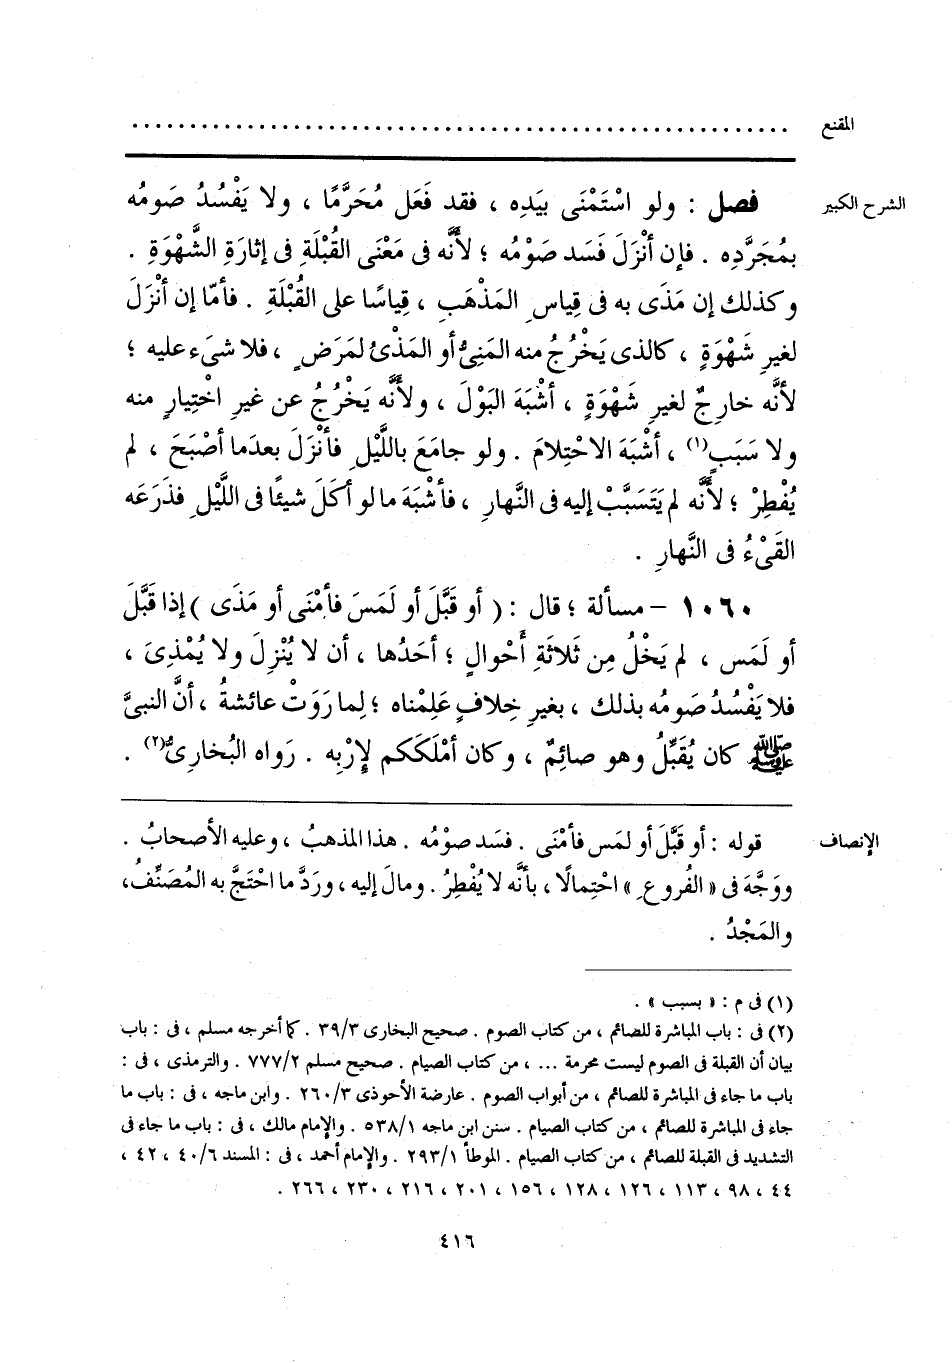 المقنع ......................................................
الشرح الكبير فصل : ولو اسْتَمْنَى بيَدِه ، فقد فَعَل مُحَرَّمًا ، ولا يَفْسُدُ صَومُه
بمُجَرَّدِه . فإن أنْزَلَ فَسَد صَوْمُه ؛ لأنَّه فى مَعْنَى القُبْلَةِ فى إثارَةِ الشَّهْوَةِ .
وكذلك إن مَذَى به فى قِياسِ المَذْهَبِ ، قِياسًا على القُبْلَةِ . فأمّا إن أنْزَلَ
لغيرِ شَهْوَةٍ ، كالذى يَخْرُجُ منه المَنِىُّ أو المَذْىُ لمَرَضٍ ، فلا شىءَ عليه ؛
لأنَّه خارِجٌ لغيرِ شَهْوَةٍ ، أشْبَهَ البَوْلَ ، ولأنَّه يَخْرُجُ عن غيرِ اخْتِيارٍ منه
ولا سَبَبٍ(١) ، أشْبَهَ الاحْتِلامَ . ولو جامَعَ باللَّيْلِ فأنْزَلَ بعدَما أصْبَحَ ، لم
يُفْطِرْ ؛ لأنَّه لم يَتَسَبَّبْ إليه فى النَّهارِ ، فأشْبَهَ ما لو أكَلَ شيئًا فى اللَّيْلِ فذَرَعَه
القَىْءُ فى النَّهارِ .
١٠٦٠ – مسألة ؛ قال : ( أو قَبَّلَ أو لَمَسَ فأمْنَى أو مَذَى ) إذا قَبَّلَ
أو لَمَس ، لم يَخْلُ مِن ثَلاثَةِ أحْوالٍ ؛ أحَدُها ، أن لا يُنْزِلَ ولا يُمْذِىَ ،
فلا يَفْسُدُ صَومُه بذلك ، بغيرِ خِلافٍ عَلِمْناه ؛ لِما رَوَتْ عائشةُ ، أنَّ النبىَّ
ﷺ كان يُقَبِّلُ وهو صائِمٌ ، وكان أمْلَكَكم لإِرْبِه . رَواه البُخارِىُّ(٢) .
الإنصاف قوله : أو قَبَّلَ أو لمَس فأمْنَى . فسَد صوْمُه . هذا المذهبُ ، وعليه الأصحابُ .
ووَجَّهَ فى « الفُروعِ » احْتِمالًا ، بأنَّه لا يُفْطِرُ . ومالَ إليه ، ورَدَّ ما احْتَجَّ به المُصَنِّفُ ،
والمَجْدُ .
(١) فى م : « بسبب » .
(٢) فى : باب المباشرة للصائم ، من كتاب الصوم . صحيح البخارى ٣٩/٣ . كما أخرجه مسلم ، فى : باب
بيان أن القبلة فى الصوم ليست محرمة ... ، من كتاب الصيام . صحيح مسلم ٧٧٧/٢ . والترمذى ، فى :
باب ما جاء فى المباشرة للصائم ، من أبواب الصوم . عارضة الأحوذى ٢٦٠/٣ . وابن ماجه ، فى : باب ما
جاء فى المباشرة للصائم ، من كتاب الصيام . سنن ابن ماجه ٥٣٨/١ . والإمام مالك ، فى : باب ما جاء فى
التشديد فى القبلة للصائم ، من كتاب الصيام . الموطأ ٢٩٣/١ . والإمام أحمد ، فى : المسند ٤٠/٦ ، ٤٢ ،
٤٤ ، ٩٨ ، ١١٣ ، ١٢٦ ، ١٢٨ ، ١٥٦ ، ٢٠١ ، ٢١٦ ، ٢٣٠ ، ٢٦٦ .
٤١٦